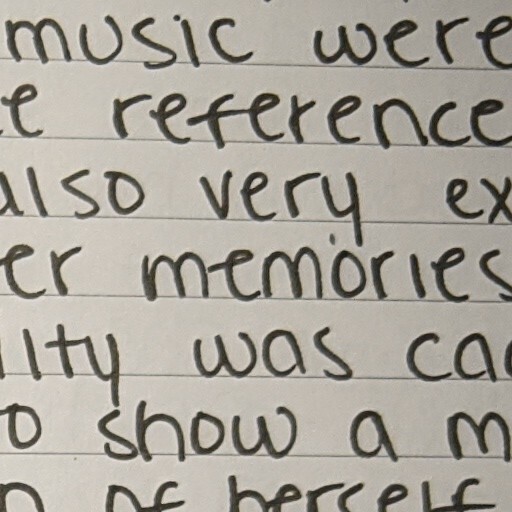 music were
e reference
also very ex
er memories
lty was ca
o show a m
n of herself